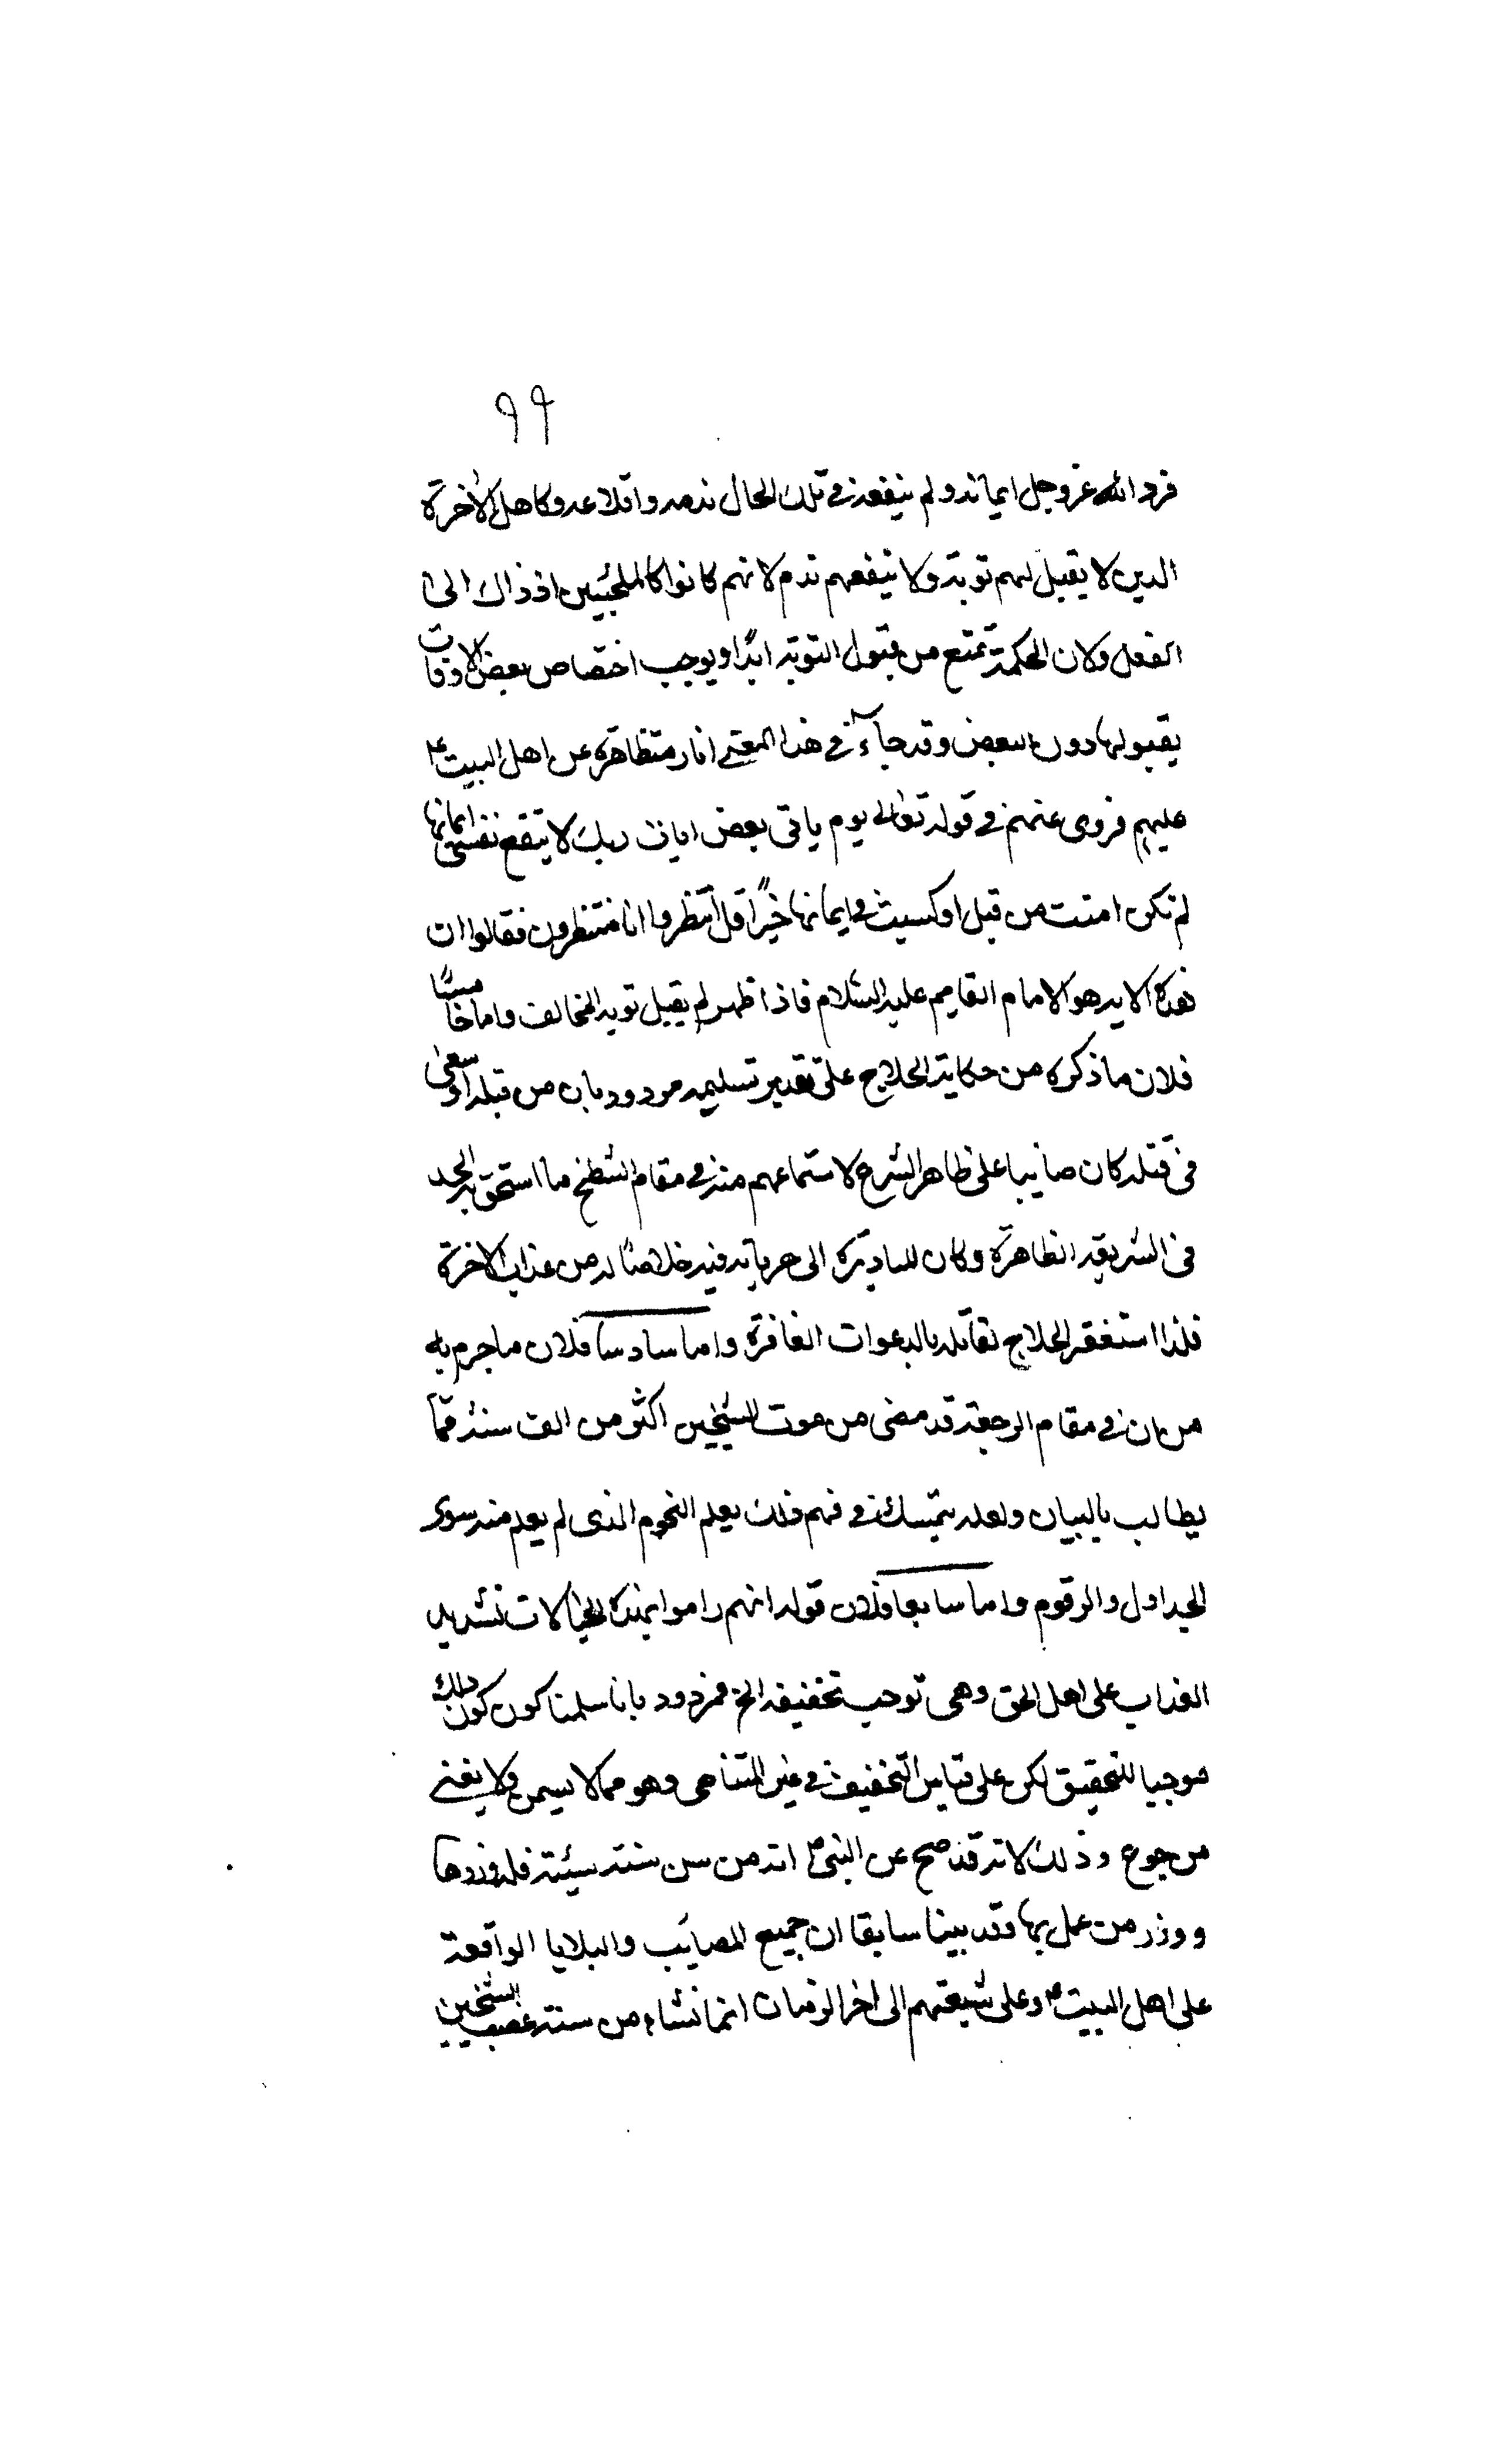 ٩٩
فرد الله عز وجل ايمانه ولم ينفعه في تلك الحال ندمه واقلاعه وكاهل الاخرة
الذين لا يقبل لهم توبة ولا ينفعهم ندم لانهم كانوا كالملجئين اذ ذاك الى
الفعل ولان الحكمة تمنع من قبول التوبة ابدًا ويوجب اختصاص بعض الاوقات
بقبولها دون البعض وقد جآء في هذا المعنى اثار متظاهرة عن اهل البيت
عليهم فروى عنهم في قوله تعالى يوم ياتي بعض ايات ربك لا ينفع نفسًا ايمانها
لم تكن امنت من قبل او كسبت في ايمانها خيرًا قل انتظروا انا منتظرون فقالوا ان
هذه الاية هو الامام القايم عليه السّلام فاذا ظهر لم يقبل توبة المخالف واما خامسًا
فلان ما ذكره من حكاية الحلاج على تقدير تسليمه مردود بان من قبله او سعى
فى قتله كان صائبا على ظاهر الشرع لاستماعهم منه في مقام الشطح ما استحق به الحد
فى الشريعة الظاهرة وكان المبادرة الى جريانه فيه خلاصًا له من عذاب الاخرة
فلذا استغفر الحلاج لقاتله بالدعوات الغافرة واما سادسا فلان ما جرم به
من ان في مقام الرجعة قد مضى من موت الشيخين اكثر من الف سنة فممّا
يطالب بالبيان ولعله يتمسك في فهم ذلك بعلم النجوم الذى لم يعلم منه سوى
الجداول والرقوم واما سابعا فلان قوله انهم راموا بهذه الخيالات تشديد
العذاب على اهل الحق وهى توجب تخفيفه الخ فمردود بانا سلمنا كون كون ذلك
موجبا للتحقيق لكن على قياس التخفيف في غير المتناهى وهو مما لا يسمن ولا يغنى
من جوع وذلك لانه قد صح عن النبى ص انه من سن سنة سيئة فله وزرها
ووزر من عمل بها وقد بينا سابقا ان جميع المصائب والبلايا الواقعة
على اهل البيت ع وعلى شيعتهم الى اخر الزمان انما نشاء من سنة غصب الشيخين